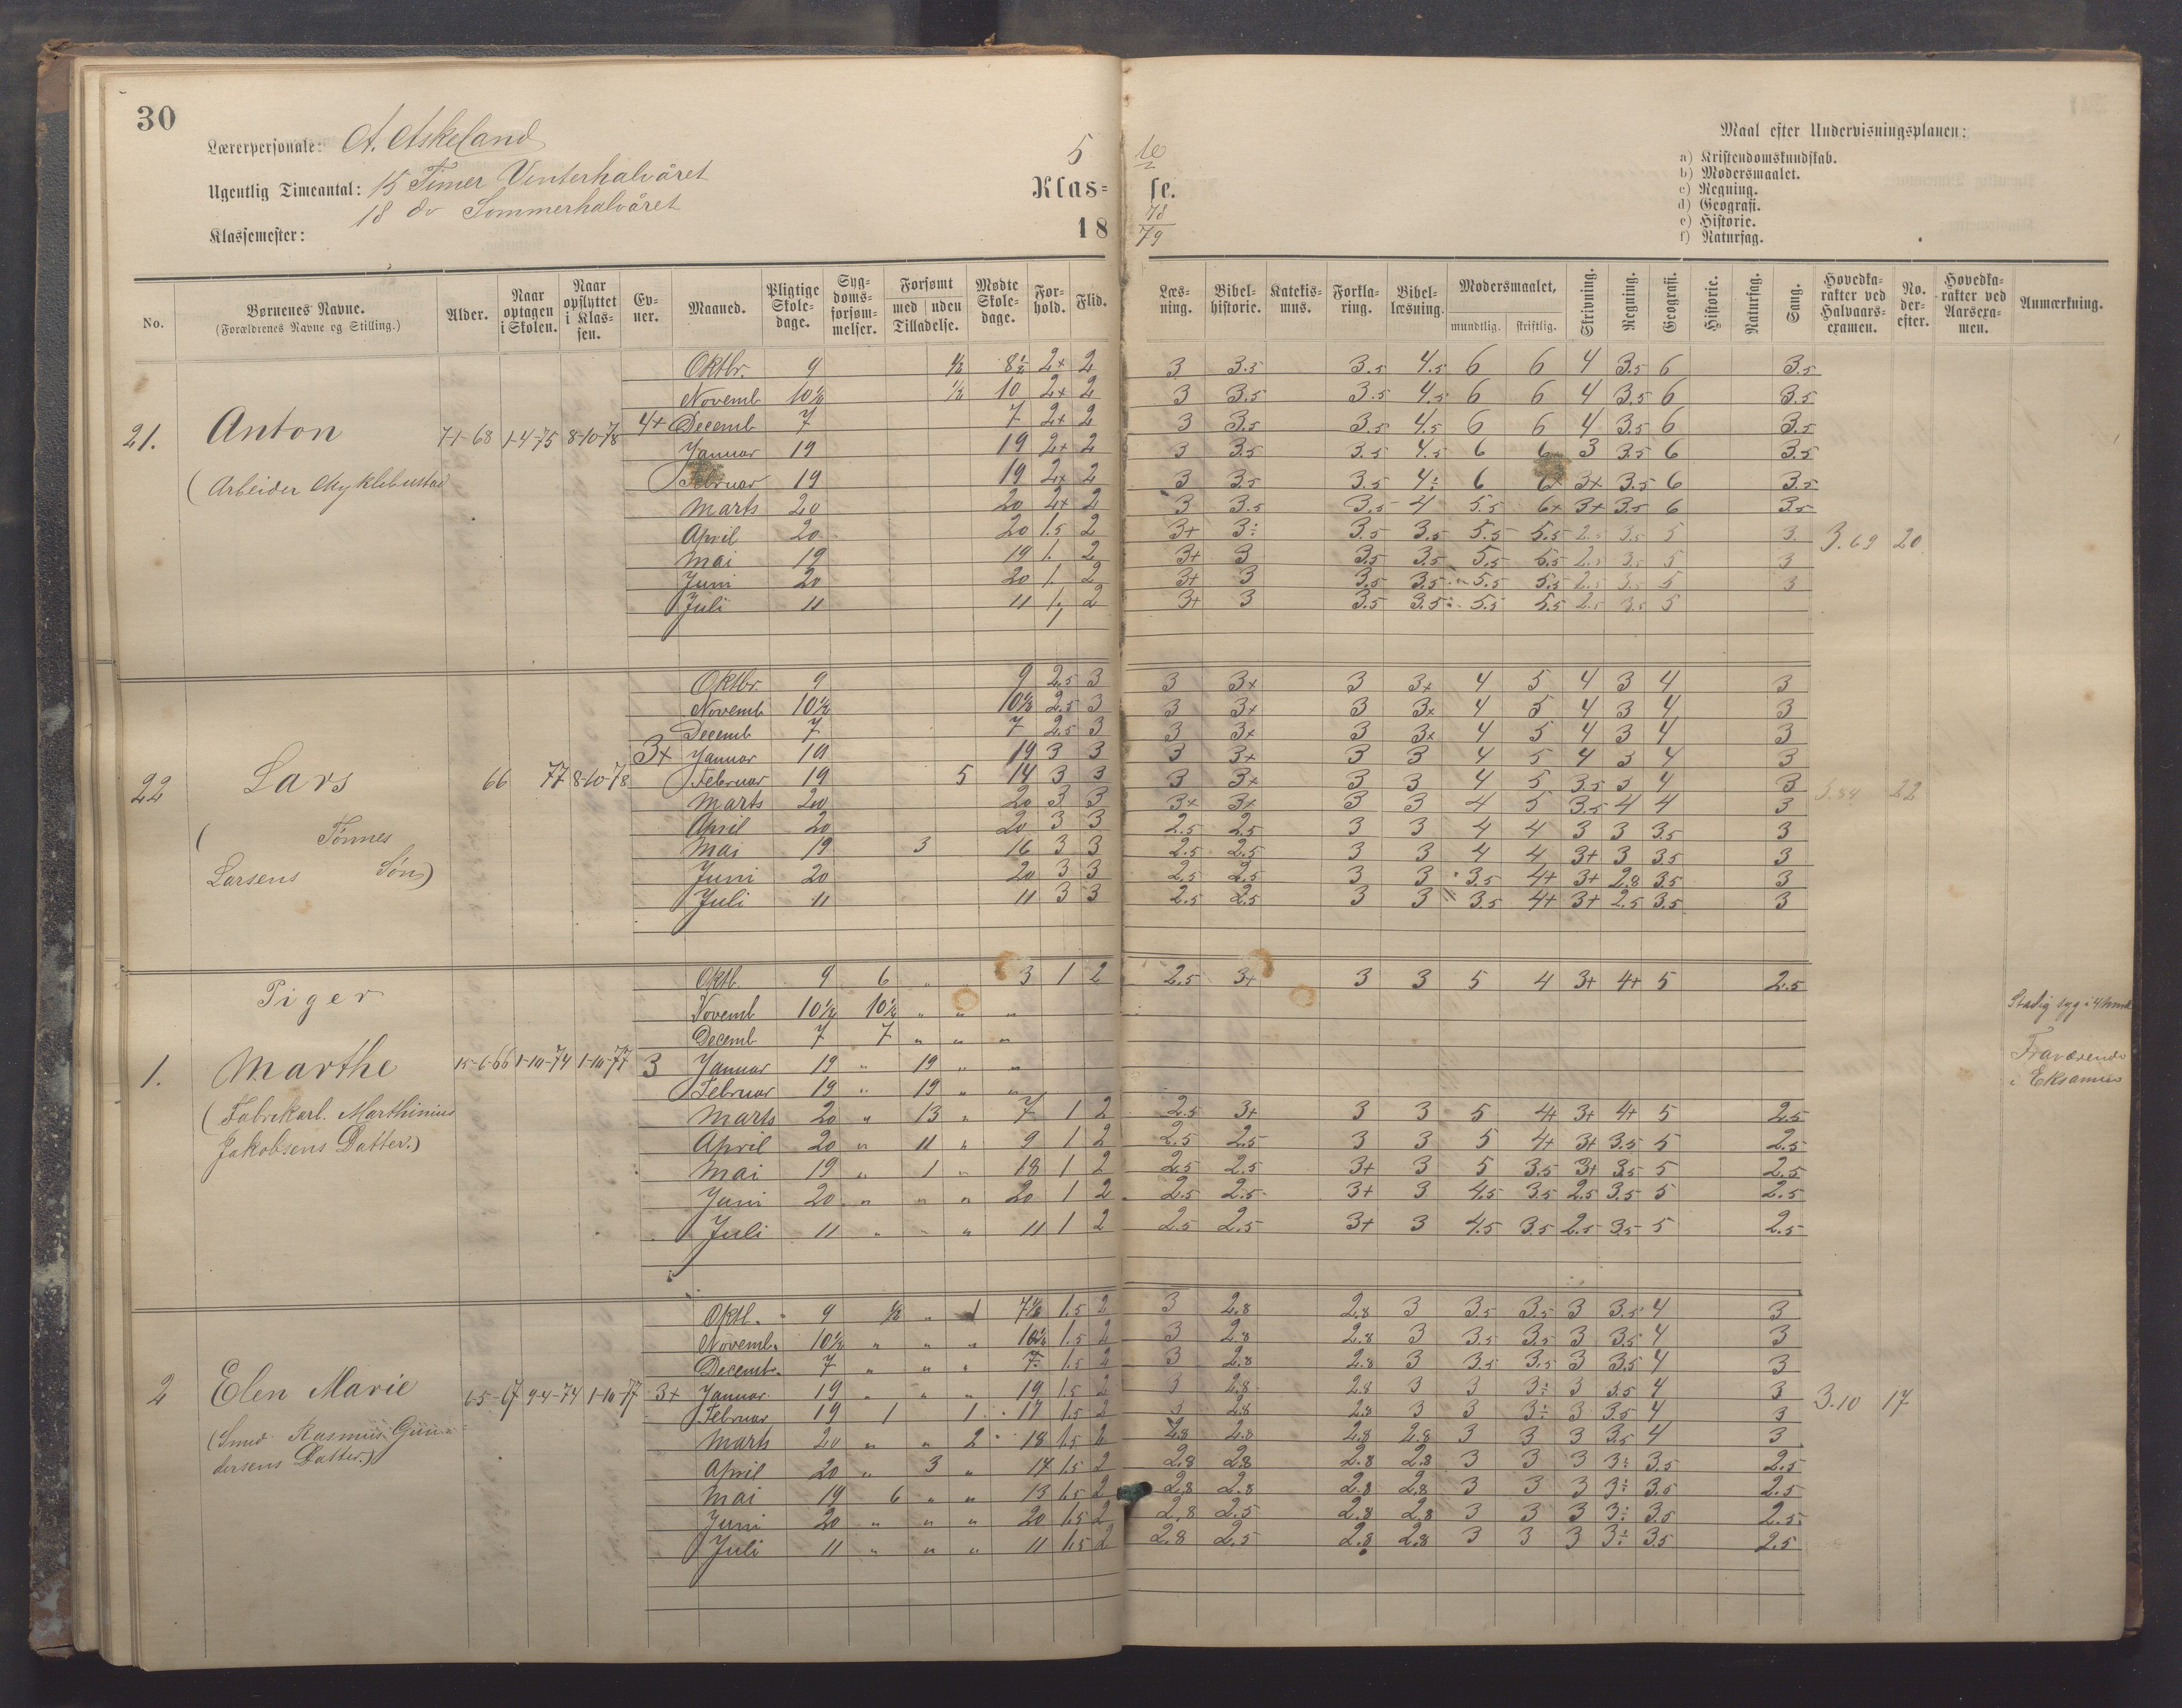 30
Lærerpersonale: A. Askeland
Ugentlig Timeantal: 15 Timer Vinterhalvåret
18 do Sommerhalvåret
Klassemester:
5 te
Klas= se.
18 78/79
Maal efter Undervisningsplanen:
a) Kristendomskundskab.
b) Modersmaalet.
c) Regning.
d) Geografi.
e) Historie.
f) Naturfag.
No. | Børnenes Navne. (Forældrenes Navne og Stilling.) | Alder. | Naar optagen i Skolen. | Naar opflyttet i Klassen. | Evner. | Maaned. | Pligtige Skoledage. | Sygdomsforsømmelser. | Forsømt med uden Tilladelse. | Mødte Skoledage. | Forhold. | Flid. | Læsning. | Bibelhistorie. | Katekismus. | Forklaring. | Bibellæsning. | Modersmaalet, mundtlig. skriftlig. | Skrivning. | Regning. | Geografi. | Historie. | Naturfag. | Sang. | Hovedkarakter ved Halvaarsexamen. | No. derefter. | Hovedkarakter ved Aarsexamen. | Anmærkning.
21. Anton 7-1-68 1-4-75 8-10-78 4+
(Arbeider Myklebustad
Oktbr. 9 ½ 8½ 2+ 2 3 3.5 3.5 4.5 6 6 4 3.5 6 3.5
Novemb 10½ ½ 10 2+ 2 3 3.5 3.5 4.5 6 6 4 3.5 6 3.5
Decemb 7 7 2+ 2 3 3.5 3.5 4.5 6 6 4 3.5 6 3.5
Januar 19 19 2+ 2 3 3.5 3.5 4.5 6 6 3 3.5 6 3.5
Februar 19 19 2+ 2 3 3.5 3.5 4÷ 6 6+ 3+ 3.5 6 3.5
Marts 20 20 2+ 2 3 3.5 3.5 4 5.5 6+ 3+ 3.5 6 3.5
April 20 20 1.5 2 3+ 3÷ 3.5 3.5 5.5 5.5 2.5 3.5 5 3. 3.69 20
Mai 19 19 1. 2 3+ 3 3.5 3.5 5.5 5.5 2.5 3.5 5 3
Juni 20 20 1. 2 3+ 3 3.5 3.5 5.5 5.5 2.5 3.5 5 3
Juli 11 11 1, 2 3+ 3 3.5 3.5 5.5 5.5 2.5 3.5 5
22 Lars 66 77 8-10-78 3+
( Tønnes
Larsens Søn)
Oktbr. 9 9 2.5 3 3 3+ 3 3+ 4 5 4 3 4 3
Novemb 10½ 10½ 2.5 3 3 3+ 3 3+ 4 5 4 3 4 3
Decemb 7 7 2.5 3 3 3+ 3 3+ 4 5 4 3 4 3
Januar 19 19 3 3 3 3+ 3 3 4 5 4 3 4 3
Februar 19 5 14 3 3 3 3+ 3 3 4 5 3.5 3 4 3 22
Marts 20 20 3 3 3+ 3+ 3 3 4 5 3.5 4 4 3
April 20 20 3 3 2.5 2.5 3 3 4 4 3 3 3.5 3
Mai 19 3 16 3 3 2.5 2.5 3 3 4 4 3+ 3 3.5 3
Juni 20 20 3 3 2.5 2.5 3 3 3.5 4+ 3+ 2.8 3.5 3
Juli 11 11 3 3 2.5 2.5 3 3 3.5 4+ 3+ 2.5 3.5 3
Piger
1. Marthe 15-6-66 1-10-74 1-10-77 3
(Fabrikarb. Marthinius
Jakobsens Datter.)
Oktb. 9 6 „ 3 1 2 2.5 3+ 3 3 5 4 3+ 4+ 5 2.5
Novemb 10½ 10½ „ „ „ Stadig syg i 4
Decemb 7 7 „ „ „
Januar 19 „ 19 „ „ Fraværende
Februar 19 „ 19 „ „ i Eksamen
Marts 20 „ 13 „ 7 1 2 2.5 3+ 3 3 5 4+ 3+ 4+ 5 2.5
April 20 „ 11 „ 9 1 2 2.5 2.5 3 3 5 4+ 3+ 3.5 5 2.5
Mai 19 „ 1 „ 18 1 2 2.5 2.5 3+ 3 5 3.5 3+ 3.5 5 2.5
Juni 20 „ „ „ 20 1 2 2.5 2.5 3+ 3 4.5 3.5 2.5 3.5 5 2.5
Juli 11 „ „ „ 11 1 2 2.5 2.5 3+ 3 4.5 3.5 2.5 3.5 5 2.5
2 Elen Marie 1-5-67 9-4-74 1-10-77 3+
(Smed Rasmus Gun-
dersens Datter.)
Oktb. 9 ½ „ 1 7½ 1.5 2 3 2.8 2.8 3 3.5 3.5 3 3.5 4 3
Novemb. 10½ „ „ „ 10½ 1.5 2 3 2.8 2.8 3 3.5 3.5 3 3.5 4 3
Decemb. 7 „ „ „ 7. 1.5 2 3 2.8 2.8 3 3.5 3.5 3 3.5 4 3
Januar. 19 „ „ „ 19 1.5 2 3 2.8 2.8 3 3 3÷ 3 3.5 4 3 3.10 17
Februar 19 1 1. 17 1.5 2 3 2.8 2.8 3 3 3÷ 3 3.5 4 3
Marts 20 „ „ 2 18 1.5 2 2.8 2.8 2.8 2.8 3 3 3 3.5 4 3
April 20 „ 3 „ 17 1.5 2 2.8 2.8 2.8 2.8 3 3 3 3÷ 3.5 2.5
Mai 19 6 „ „ 13 1.5 2 2.8 2.8 2.8 2.8 3 3 3 3÷ 3.5 2.5
Juni 20 „ „ „ 20 1.5 2 2.8 2.5 2.8 2.8 3 3 3 3÷ 3.5 2.5
Juli 11 „ „ „ 11 1.5 2 2.8 2.5 2.8 2.8 3 3 3 3÷ 3.5 2.5